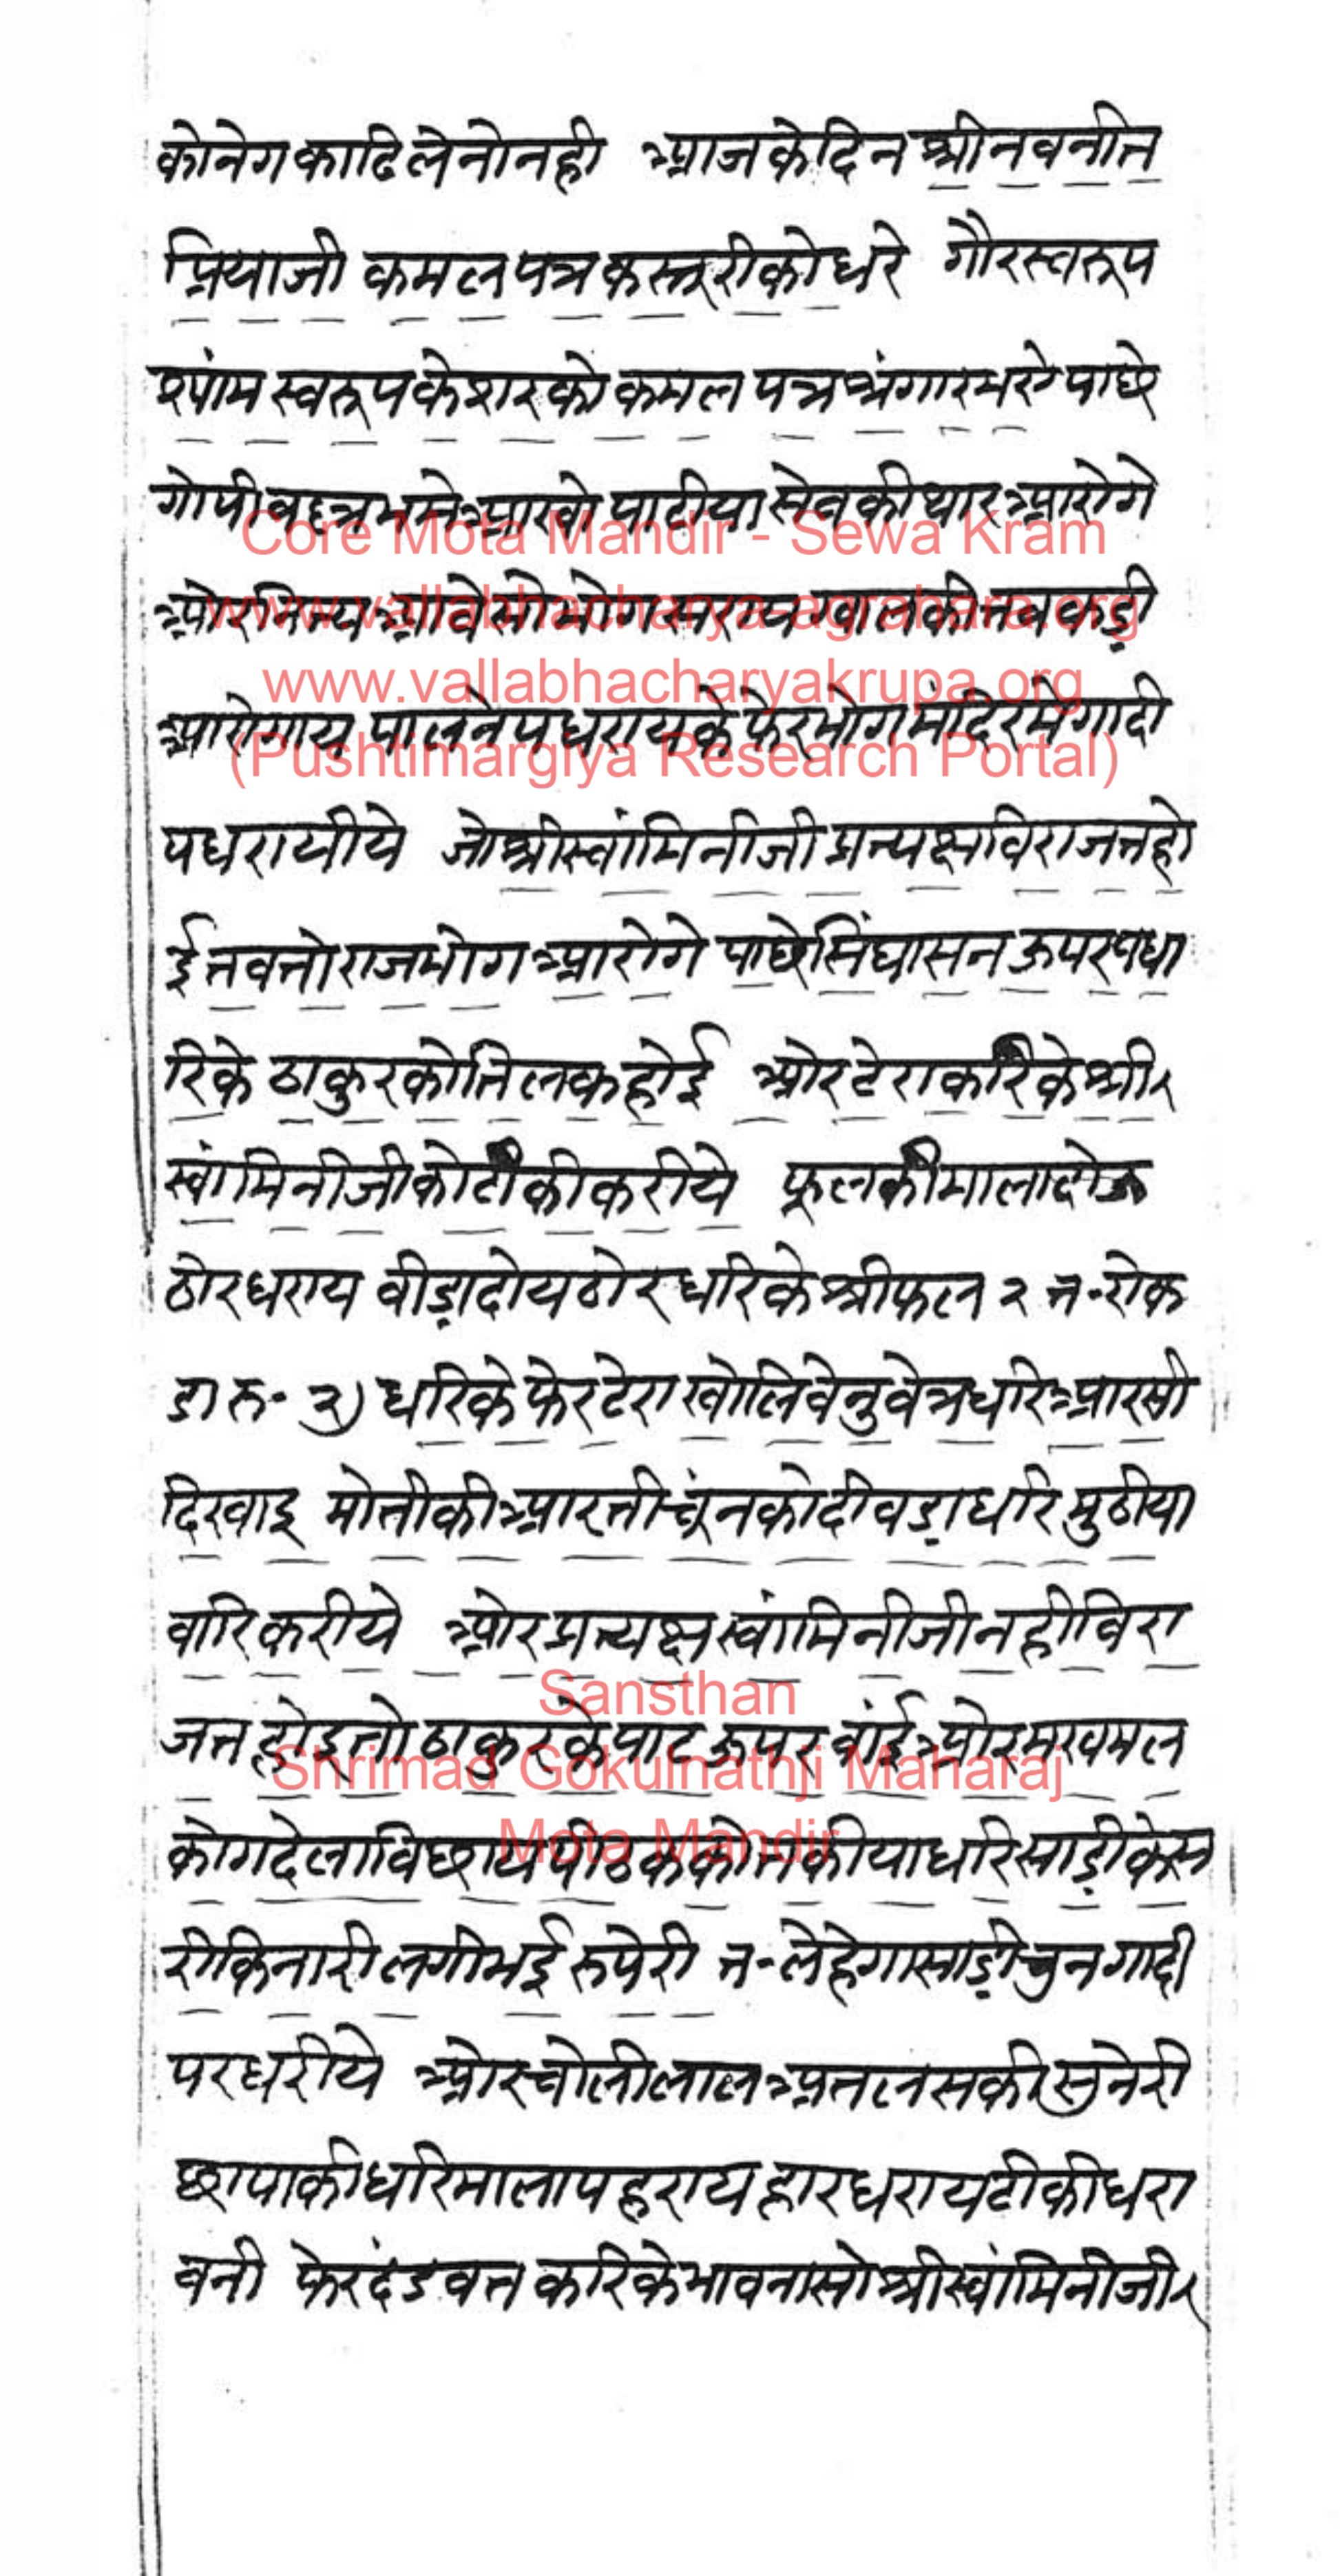 कोनेगकाढिलेनोनही आजकेदिन श्रीनवनीत
प्रियाजी कमलपत्रकस्तूरीकोधरे गौरस्वरूप
श्यांम स्वरूपकेशरको कमलपत्रश्रंगारभये पाछे
गोपीवल्लभमे आखो पाटीया सेवकी थार आरोगे
ओर नित्य आवे सो भोग सराय ग्वालकी तबकडी
आरोगाय पालने पधरायके फेर भोग मंदिरमे गादी
पधरायीये जो श्रीस्वांमिनीजी प्रत्यक्ष विराजत हो
ई तब तो राजभोग आरोगे पाछे सिंघासन ऊपर पधा
रिके ठाकुरको तिलक होई ओर टेरा करिके श्री
स्वांमिनीजीको टीकी करीये फूलकी माला दोऊ
ठोर धराय बीडा दोय ठोर धरिके श्रीफल २ त॰ रोक
डा रु॰ २) धरिके फेर टेरा खोलि वेनु वेत्र धरि आरसी
दिखाइ मोतीकी आरती चूंनको दीवडा धरि मुठीया
वारि करीये ओर प्रत्यक्ष स्वांमिनीजी नही विरा
जत होइ तो ठाकुरके पाट ऊपर बांई ओर मखमल
को गदेला विछाय पीठकको तकीया धरि साडी केस
री किनारी लगी भई रुपेरी त॰ लेहेगा साडी चुन गादी
पर धरीये ओर चोली लाल अतलसकी सुनेरी
छापाकी धरि माला पहराय हार धराय टीकी धरा
वनी फेर दंडवत करिके भावनासो श्रीस्वांमिनीजी
Core Mota Mandir - Sewa Kram
www.vallabhacharya-agrahara.org
www.vallabhacharyakrupa.org
(Pushtimargiya Research Portal)
Sansthan
Shrimad Gokulnathji Maharaj
Mota Mandir